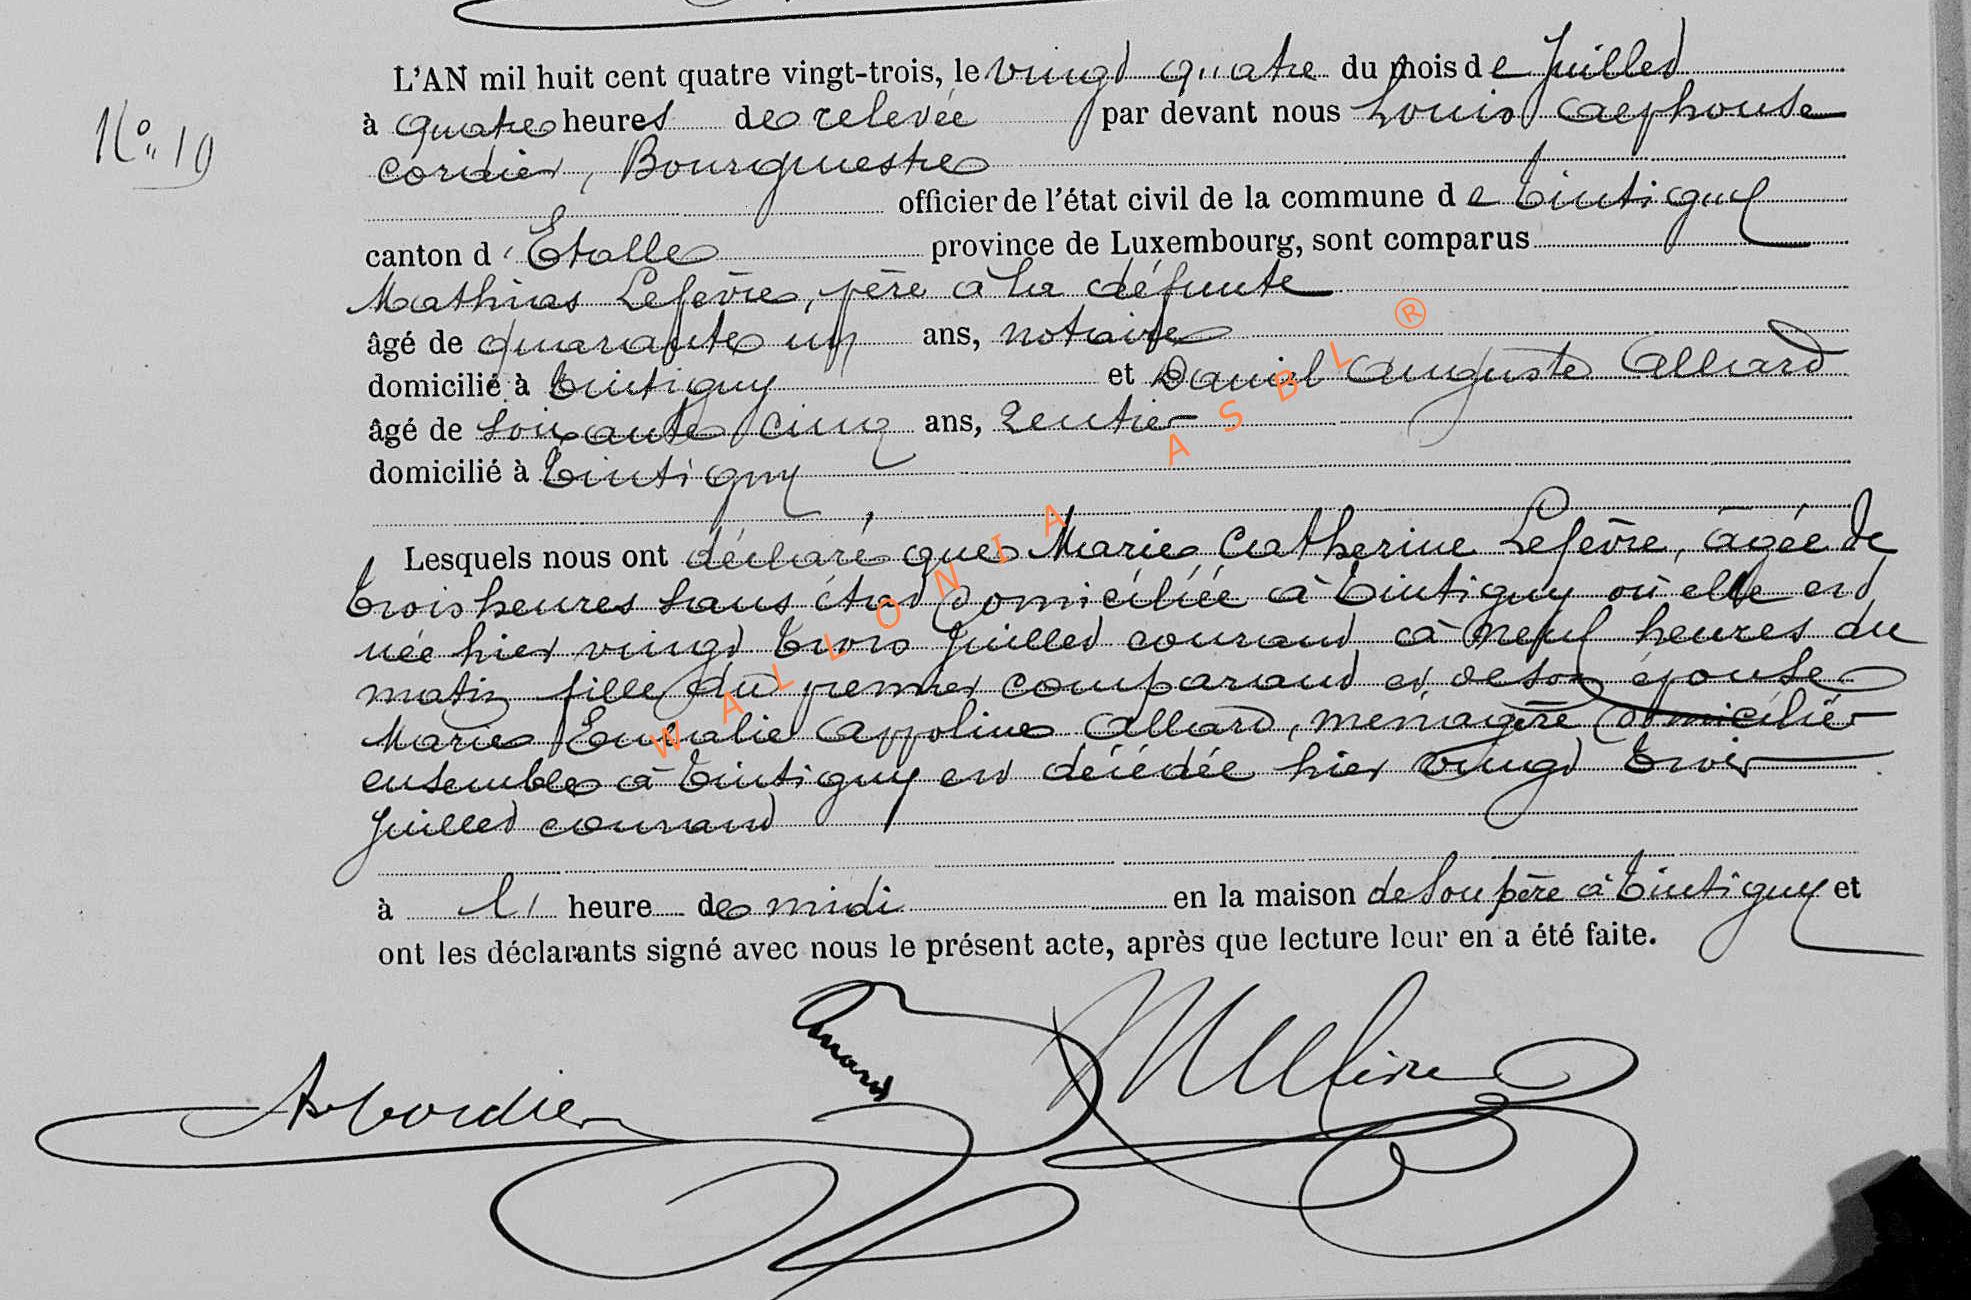 L'AN mil huit cent quatre vingt-trois, le vingt quatre du mois de Juillet
N° 19
à quatre heures de relevée par devant nous Louis Alphonse
Cordier, Bourgmestre
officier de l'état civil de la commune de Tintigny
canton d'Etalle province de Luxembourg, sont comparus
Mathias Lefèvre, père à la défunte
âgé de quarante un ans, notaire
domicilié à Tintigny et Daniel Auguste Alliard
âgé de soixante cinq ans, rentier
domicilié à Tintigny
Lesquels nous ont déclaré que Marie Catherine Lefèvre, âgée de
trois heures sans état domiciliée à Tintigny où elle est
née hier vingt trois Juillet courant à neuf heures du
matin fille du premier comparant et de son épouse
Marie Eulalie Appoline Alliard, ménagère domiciliés
ensemble à Tintigny est décédée hier vingt trois
Juillet courant
à l' heure de midi en la maison de son père à Tintigny et
ont les déclarants signé avec nous le présent acte, après que lecture leur en a été faite.
WALLONIA ASBL ®